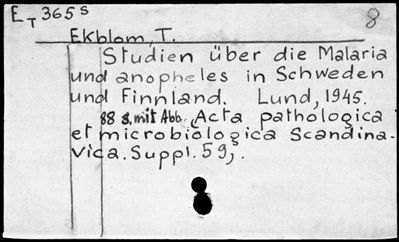 E_T 365 s
8
Ekblom, T.
Studien über die Malaria
und anopheles in Schweden
und Finnland. Lund, 1945.
88 s. mit Abb. Acta pathologica
et microbiologica Scandina-
vica. Suppl. 59.